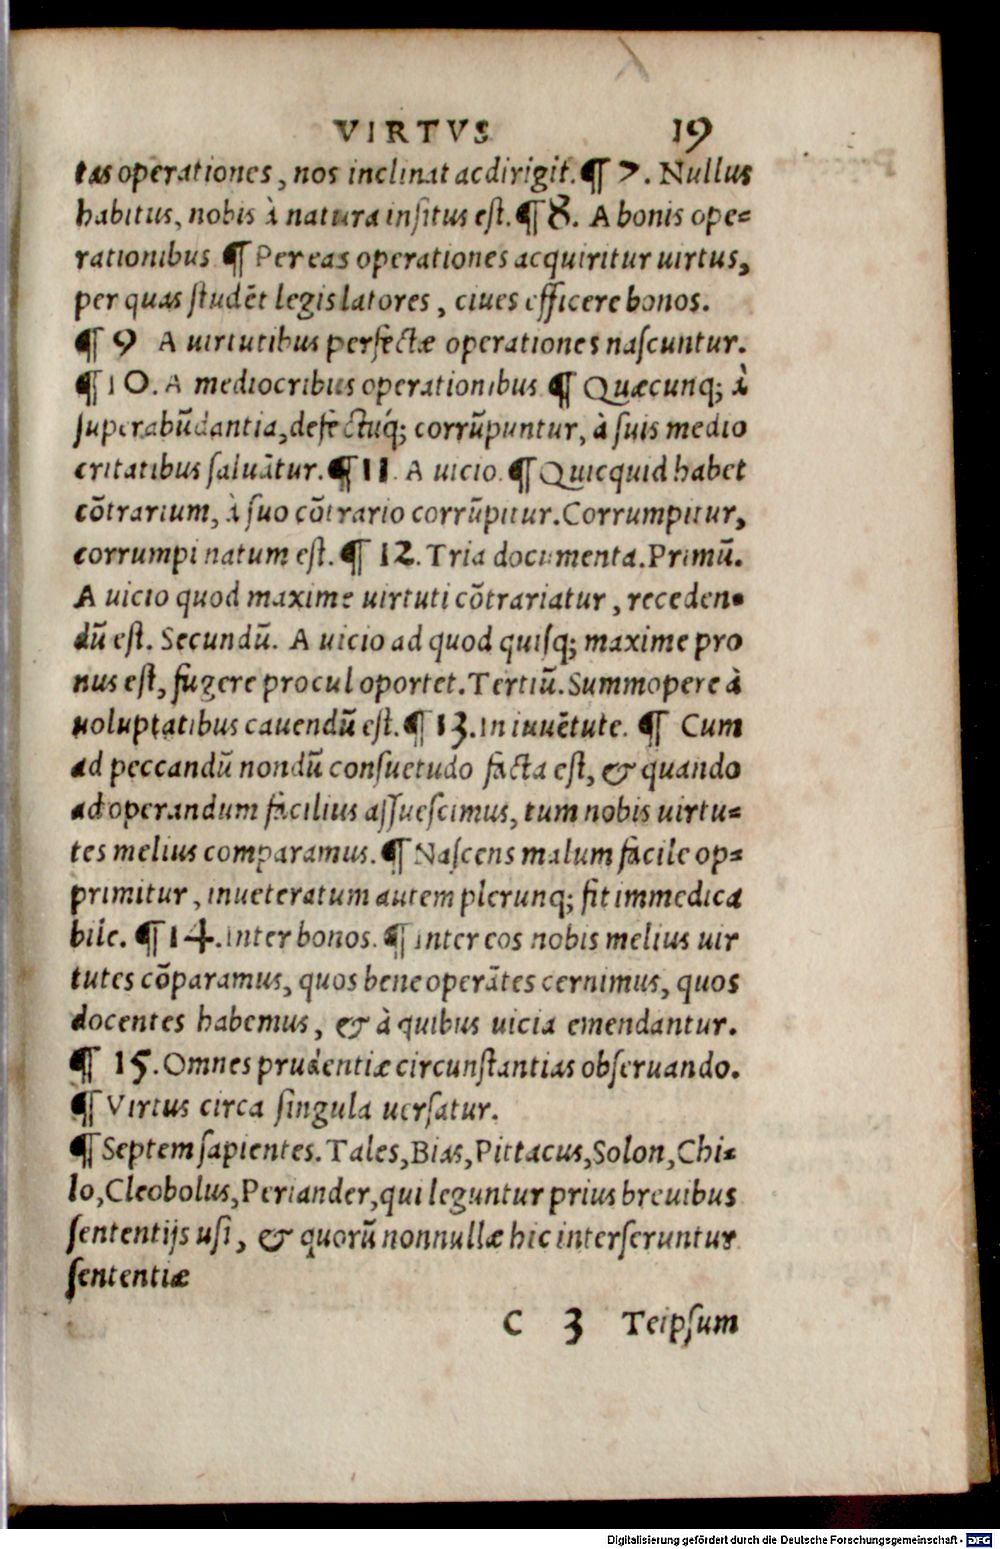 VIRTVS 19
tas operationes, nos inclinat ac dirigit. ¶ 7. Nullus
habitus, nobis à natura insitus est. ¶ 8. A bonis ope=
rationibus ¶ Per eas operationes acquiritur uirtus,
per quas studẽt legis latores, ciues efficere bonos.
¶ 9 A uirtutibus perfectæ operationes nascuntur.
¶ 10. A mediocribus operationibus ¶ Quæcunq; à
superabũdantia, defectuq́; corrũpuntur, à suis medio
critatibus saluãtur. ¶ 11. A uicio. ¶ Quicquid habet
cõtrarium, à suo cõtrario corrũpitur. Corrumpitur,
corrumpi natum est. ¶ 12. Tria documenta. Primũ.
A uicio quod maxime uirtuti cõtrariatur, receden=
dũ est. Secundũ. A uicio ad quod quisq; maxime pro
nus est, fugere procul oportet. Tertiũ. Summopere à
uoluptatibus cauendũ est. ¶ 13. In iuuẽtute. ¶ Cum
ad peccandũ nondũ consuetudo facta est, & quando
ad operandum facilius assuescimus, tum nobis uirtu=
tes melius comparamus. ¶ Nascens malum facile op=
primitur, inueteratum autem plerunq; fit immedica
bile. ¶ 14. Inter bonos. ¶ Inter eos nobis melius uir
tutes cõparamus, quos bene operãtes cernimus, quos
docentes habemus, & à quibus uicia emendantur.
¶ 15. Omnes prudentiæ circunstantias obseruando.
¶ Virtus circa singula uersatur.
¶ Septem sapientes. Tales, Bias, Pittacus, Solon, Chi=
lo, Cleobolus, Periander, qui leguntur prius breuibus
sententijs usi, & quorũ nonnullæ hic interseruntur
sententiæ
C 3 Teipsum
Digitalisierung gefördert durch die Deutsche Forschungsgemeinschaft - DFG